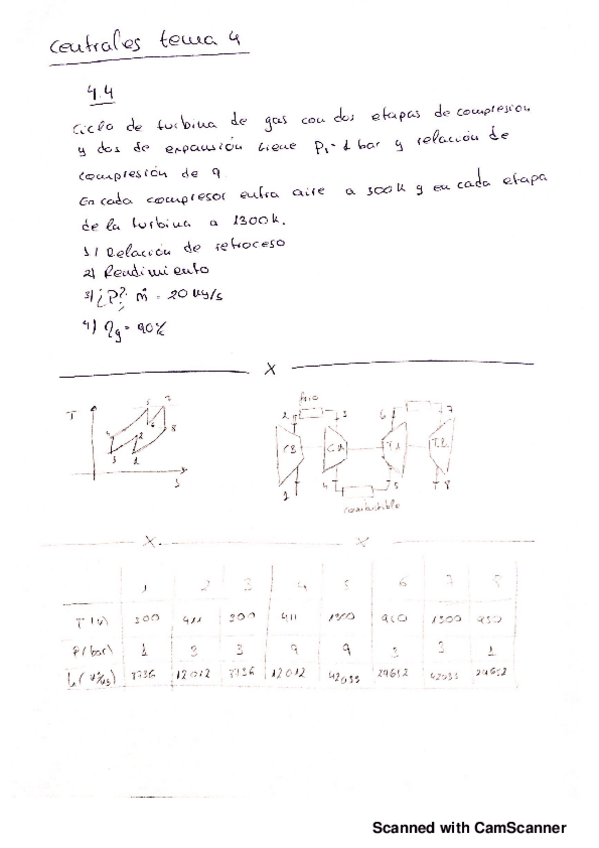 Centrales tema 4
4.4
Ciclo de turbina de gas con dos etapas de compresion
y dos de expansión tiene P1=1 bar y relación de
compresión de 9.
En cada compresor entra aire a 300k y en cada etapa
de la turbina a 1300k.
1) Relación de retroceso
2) Rendimiento
3) ¿P? ṁ = 20 kg/s
4) ηg = 90%
X
T
5 7
4 2 6 8
3 1
s
frio
2 3 6 7
CB CA TA TB
1 4 5 8
combustible
X X
1 2 3 4 5 6 7 8
T(k) 300 411 300 411 1300 1300
P(bar) 1 3 3 9 9 3 3 1
12012 12012
Scanned with CamScanner